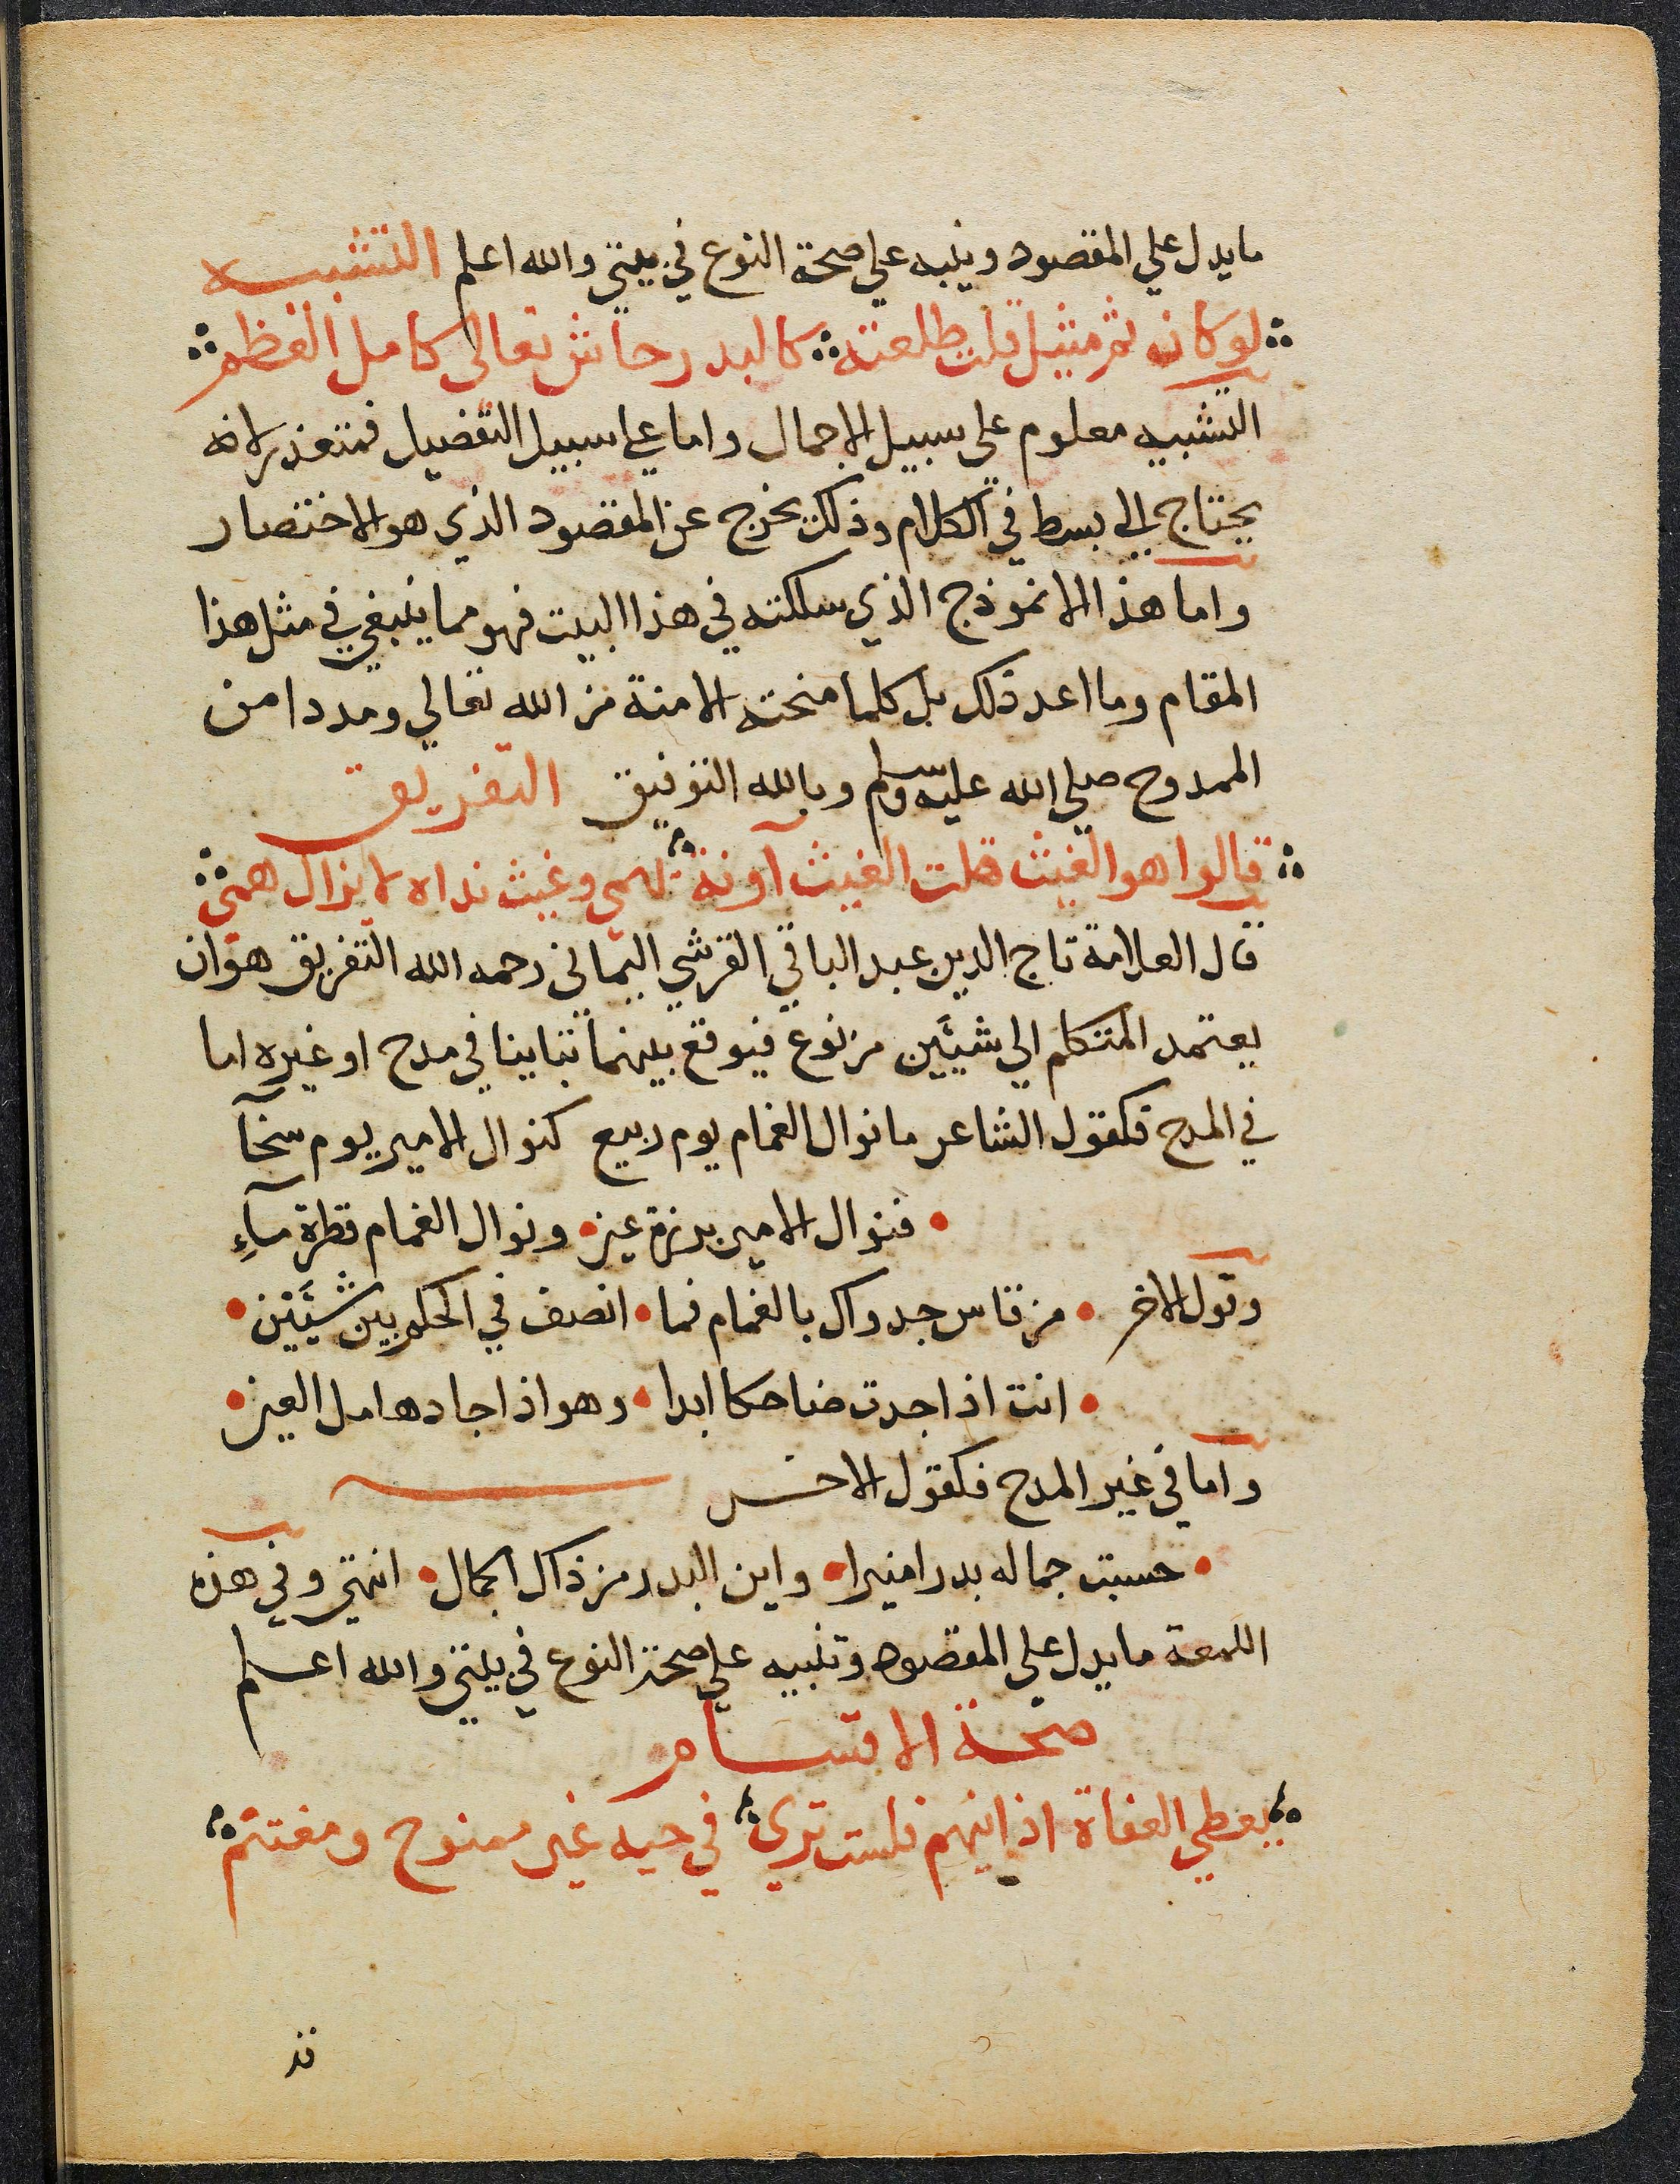 ما يدل علي المقصود وينبه علي صحة النوع في بيتي والله اعلم التشبيه
لو كان ثم مثيل قلت طلعته كالبدر حاش تعالى كامل العظم
التشبيه معلوم علي سبيل الاجمال واما علي سبيل التفصيل فمتعذر لانه
يحتاج الي بسط في الكلام وذلك يخرج عن المقصود الذي هو الاختصار
واما هذا الانموذج الذي سلكته في هذا البيت فهو مما ينبغي في مثل هذا
المقام وما اعد ذلك بل كلما منحته الا منة من الله تعالي ومددا من
الممدوح صلي الله عليه وسلم وبالله التوفيق التفريق
قالوا هو الغيث قلت الغيث آونة يهمي وغيث نداه لا يزال همي
قال العلامة تاج الدين عبد الباقي القرشي اليماني رحمه الله التفريق هو ان
يعتمد المتكلم الي شيئَين من نوع فيوقع بينهما تباينا في مدح او غيره اما
في المدح فكقول الشاعر ما نوال الغمام يوم ربيع كنوال الامير يوم سخآ
فنوال الامير بدرة عين ونوال الغمام قطرة مآءِ
وقول الاخر من قاس جدواك بالغمام فما انصف في الحكم بين شيئَيْن
انت اذا جدت ضاحكا ابدا وهو اذا جاد هامل العين
واما في غير المدح فكقول الاخر
حسبت جماله بدرا منيرا واين البدر من ذاك الجمال انتهي وفي هذه
اللمعة ما يدل علي المقصود وتنبيه علي صحة النوع في بيتي والله اعلم
صحة الاقسام
يعطي العفاة اذا فلست تري في حيه غير ممنوح ومغتنم